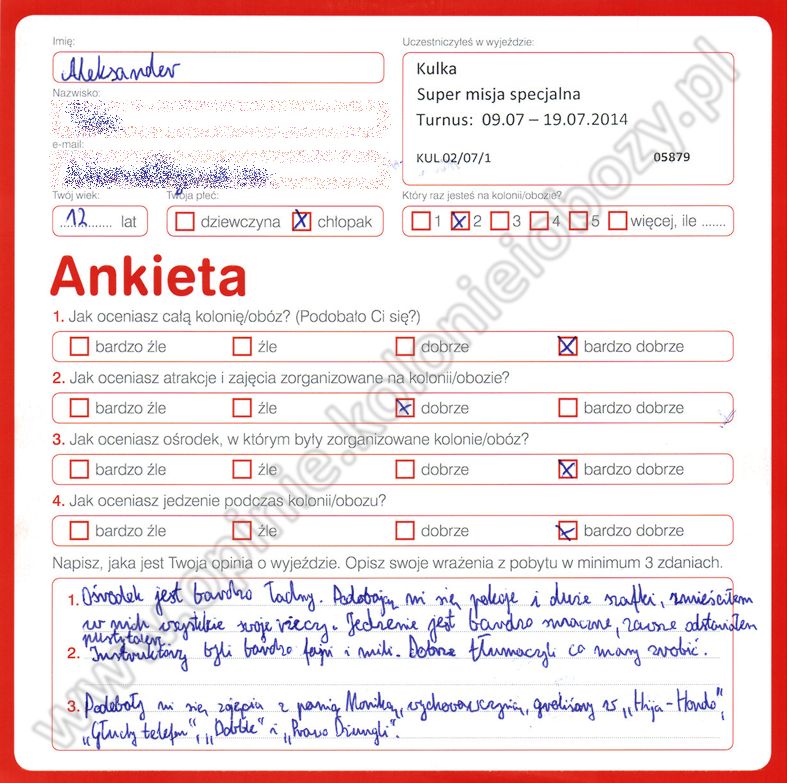 Imię:
Aleksander
Uczestniczyłeś w wyjeździe:
Kulka
Super misja specjalna
Turnus: 09.07 – 19.07.2014
KUL 02/07/1 05879
Nazwisko:
e-mail:
Twój wiek: Twoja płeć: Który raz jesteś na kolonii/obozie?
12 lat dziewczyna X chłopak 1 X 2 3 4 5 więcej, ile .......
Ankieta
1. Jak oceniasz całą kolonię/obóz? (Podobało Ci się?)
bardzo źle źle dobrze X bardzo dobrze
2. Jak oceniasz atrakcje i zajęcia zorganizowane na kolonii/obozie?
bardzo źle źle X dobrze bardzo dobrze
3. Jak oceniasz ośrodek, w którym były zorganizowane kolonie/obóz?
bardzo źle źle dobrze X bardzo dobrze
4. Jak oceniasz jedzenie podczas kolonii/obozu?
bardzo źle źle dobrze X bardzo dobrze
Napisz, jaka jest Twoja opinia o wyjeździe. Opisz swoje wrażenia z pobytu w minimum 3 zdaniach.
1. Ośrodek jest bardzo ładny. Podobają mi się pokoje i duże szafki, zmieściłem
w nich wszystkie swoje rzeczy. Jedzenie jest bardzo smaczne, zawsze odstawiałem
pusty talerz.
2. Instruktorzy byli bardzo fajni i mili. Dobrze tłumaczyli co mamy zrobić.
3. Podobały mi się zajęcia z panią Moniką, wychowawczynią, graliśmy w „Hija-Hondo",
„Głuchy telefon", „Dobble" i „Prawo Dżungli".
www.opinie.kolonieiobozy.pl